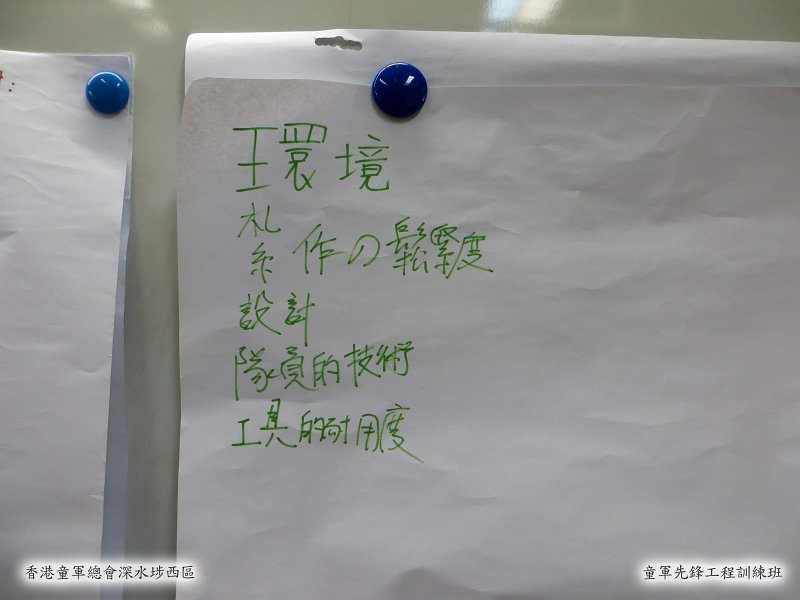 環境
紮作の鬆緊度
設計
隊員的技術
工具的耐用度
香港童軍總會深水埗西區
童軍先鋒工程訓練班